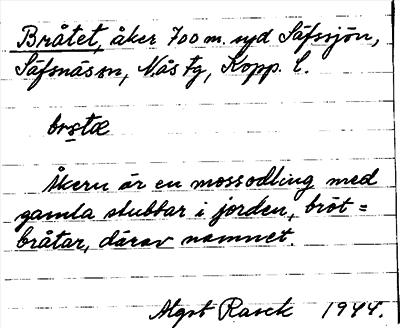 Bråtet, åker 700 m. syd Säfssjön,
Säfsnäs sn, Nås tg, Kopp. l.
brstæ
Åkern är en mossodling med
gamla stubbar i jorden, bröt=
bråtar, därav namnet.
Algot Rasck 1944.